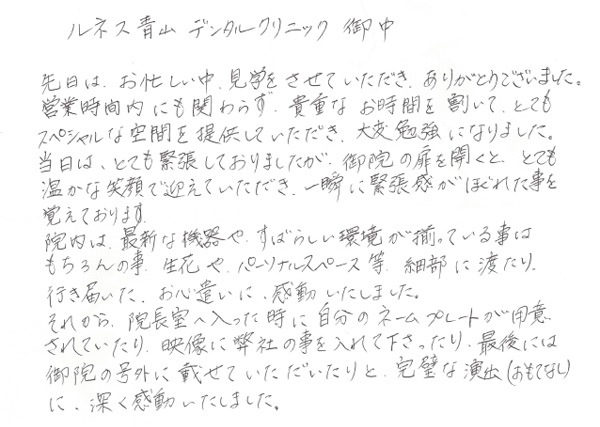 ルネス青山 デンタルクリニック 御中
先日は、お忙しい中、見学をさせていただき、ありがとうございました。
営業時間内にも関わらず、貴重なお時間を割いて、とても
スペシャルな空間を提供していただき、大変勉強になりました。
当日は、とても緊張しておりましたが、御院の扉を開くと、とても
温かな笑顔で迎えていただき、一瞬に緊張感がほぐれた事を
覚えております。
院内は、最新な機器や、すばらしい環境が揃っている事は
もちろんの事、生花や、パーソナルスペース等、細部に渡たり、
行き届いた、お心遣いに、感動いたしました。
それから、院長室へ入った時に自分のネームプレートが用意
されていたり、映像に弊社の事を入れて下さったり、最後には
御院の号外に載せていただいたりと、完璧な演出(おもてなし)
に、深く感動いたしました。